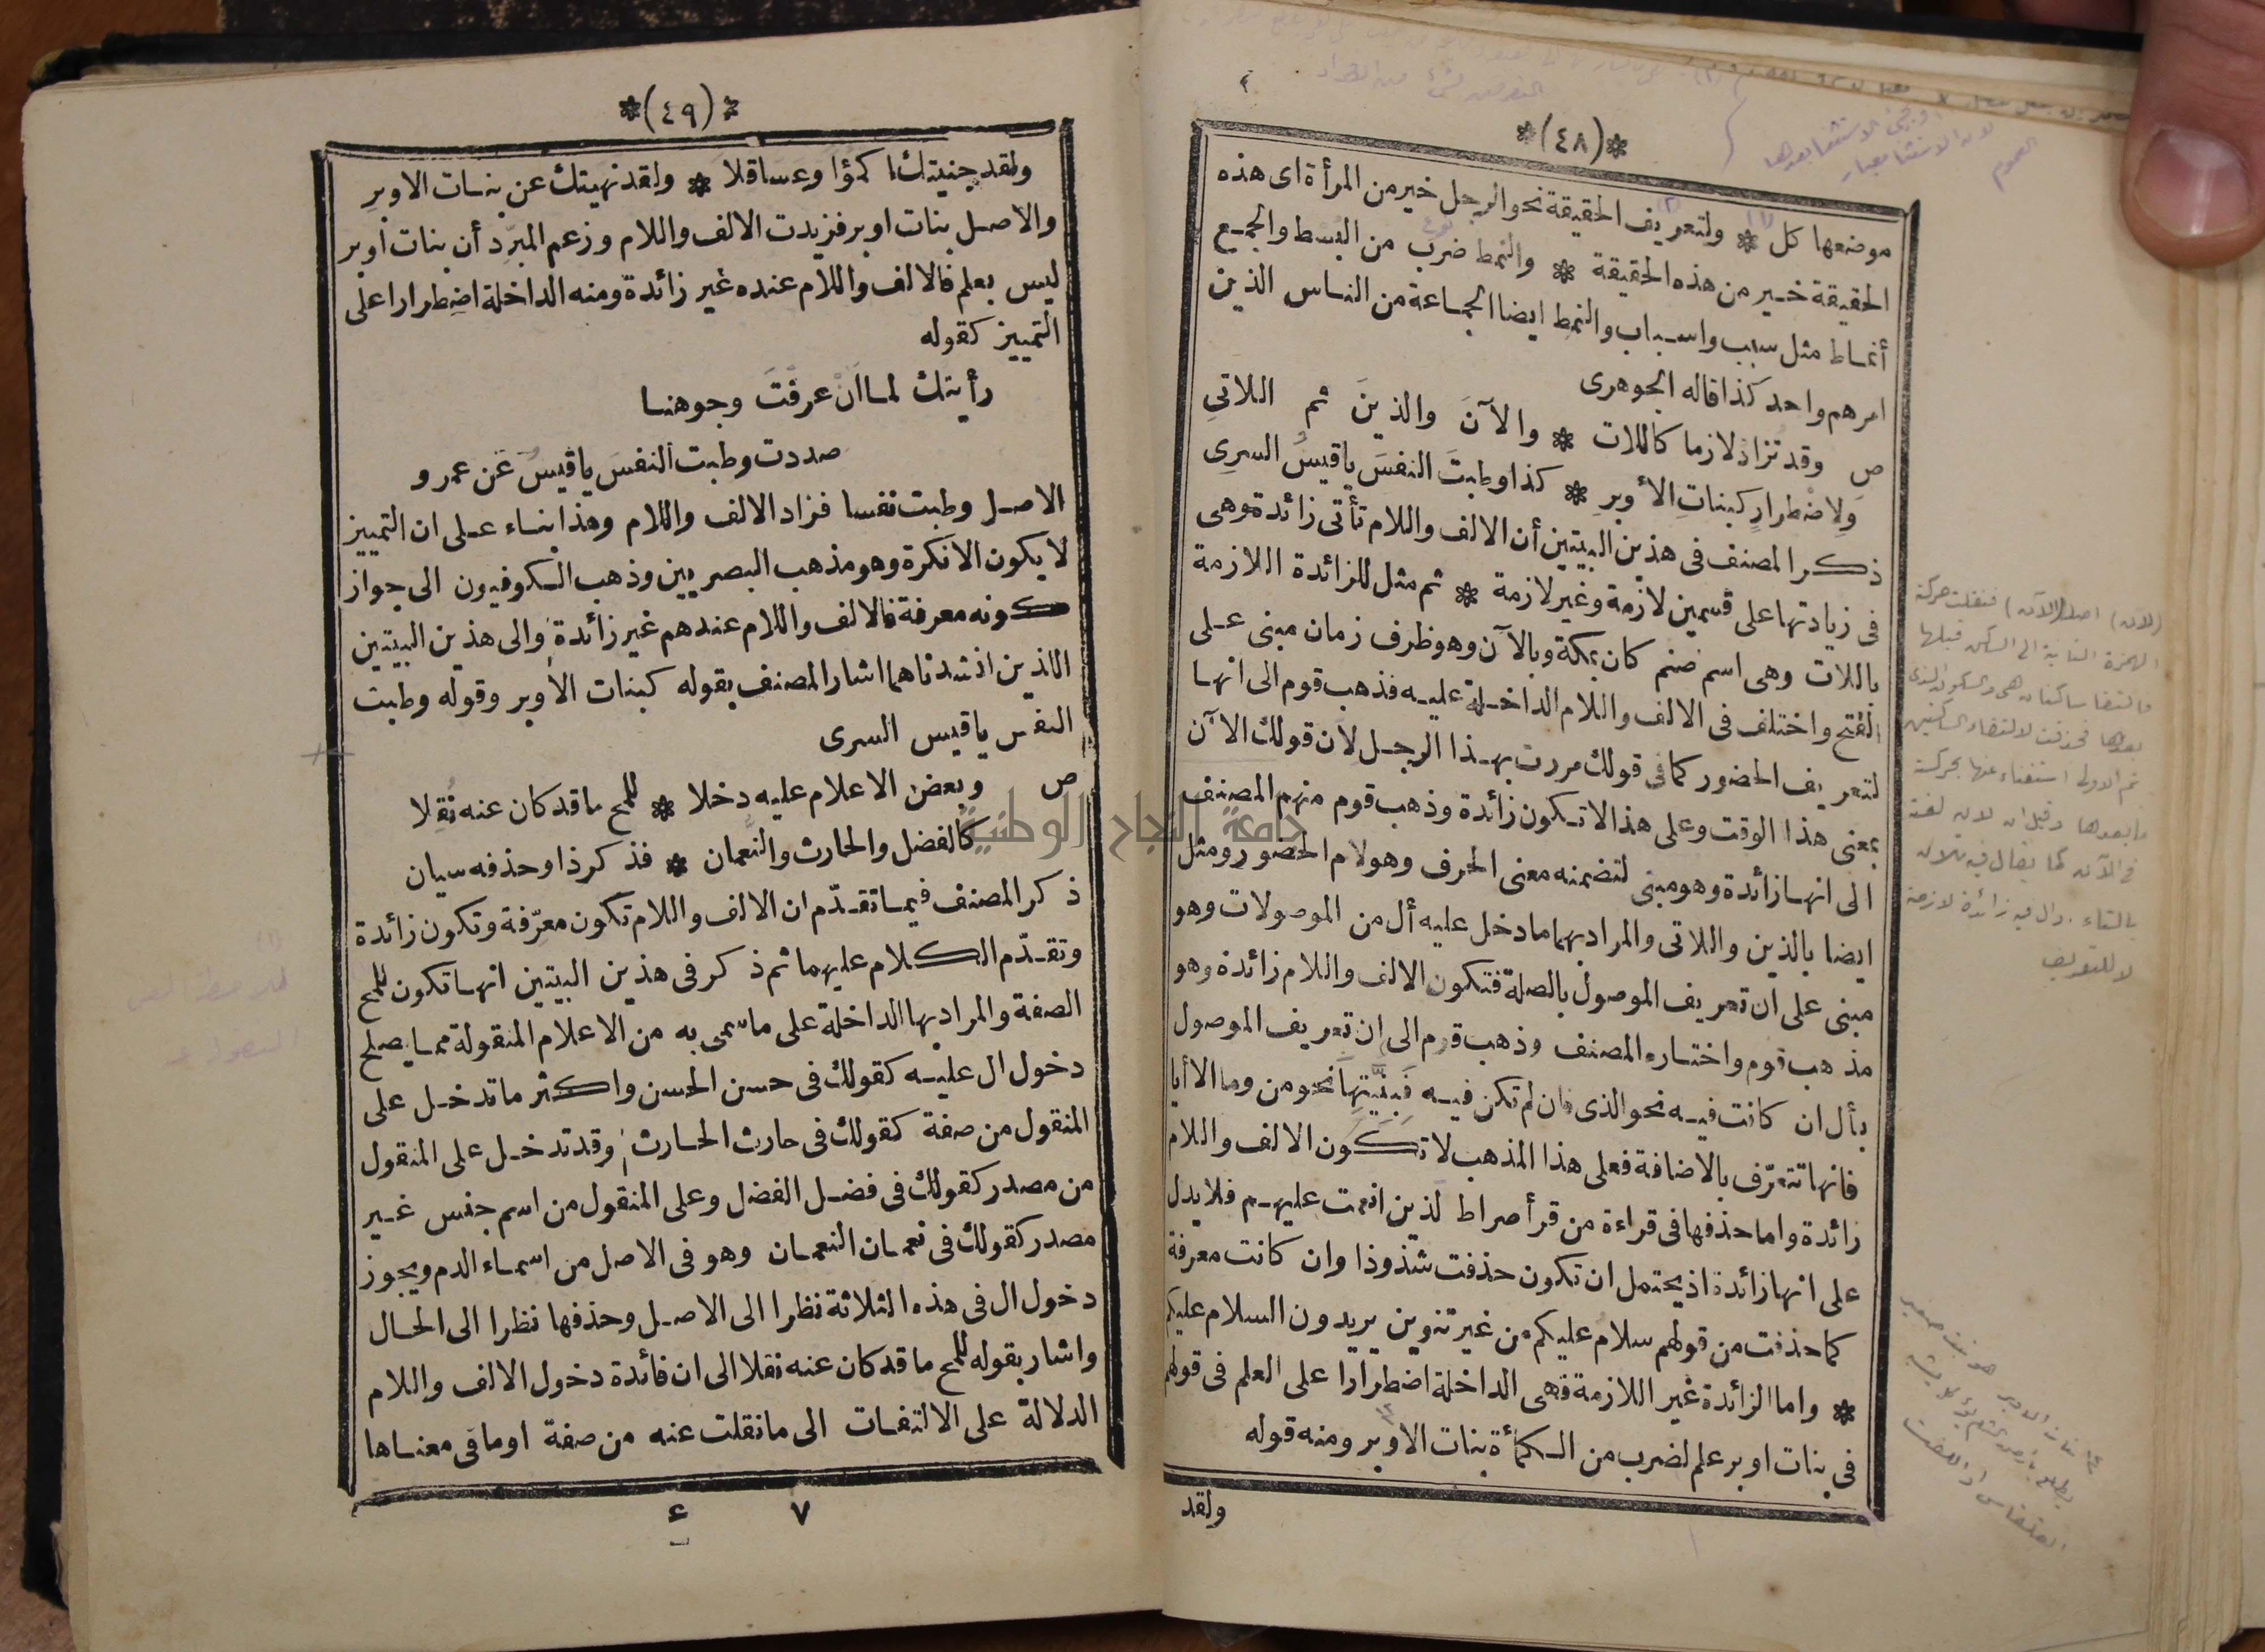 *(٤٨)*
موضعها كل * ولتعريف الحقيقة نحو الرجل خير من المرأة اى هذه
الحقيقة خير من هذه الحقيقة * والنمط ضرب من البسط والجمع
أنماط مثل سبب واسباب والنمط ايضا الجماعة من الناس الذين
امرهم واحد كذا قاله الجوهرى
ص وقد تزاد لازما كاللات * والآنَ والذينَ ثم اللاتِى
وَلِاضْطرارٍ كبناتِ الأوبرِ * كذا وطبتَ النفسَ ياقيسُ السرِى
ذكر المصنف فى هذين البيتين أن الالف واللام تأتى زائدة وهى
فى زيادتها على قسمين لازمة وغير لازمة * ثم مثل للزائدة اللازمة
باللات وهى اسم صنم كان بمكة وبالآن وهو ظرف زمان مبنى على
الفتح واختلف فى الالف واللام الداخلة عليه فذهب قوم الى انها
لتعريف الحضور كما فى قولك مررت بهذا الرجل لأن قولك الآن
بمعنى هذا الوقت وعلى هذا لاتكون زائدة وذهب قوم منهم المصنف
الى انها زائدة وهو مبنى لتضمنه معنى الحرف وهو لام الحضور ومثل
ايضا بالذين واللاتى والمراد بهما ما دخل عليه أل من الموصولات وهو
مبنى على ان تعريف الموصول بالصلة فتكون الالف واللام زائدة وهو
مذهب قوم واختاره المصنف وذهب قوم الى ان تعريف الموصول
بأل ان كانت فيه نحو الذى فان لم تكن فيه فبِنِيَّتِها نحو من وما الا أيا
فانها تتعرّف بالاضافة فعلى هذا المذهب لاتكون الالف واللام
زائدة واما حذفها فى قراءة من قرأ صراط لذين انعمت عليهم فلا يدل
على انها زائدة اذ يحتمل ان تكون حذفت شذوذا وان كانت معرفة
كما حذفت من قولهم سلام عليكم من غير تنوين يريدون السلام عليكم
* واما الزائدة غير اللازمة فهى الداخلة اضطرارا على العلم فى قولهم
فى بنات اوبر علم لضرب من الكمأة بنات الاوبر ومنه قوله
ولقد
(الآن) اصلها (الأان) فنقلت حركة
الهمزة الثانية الى الساكن قبلها
فالتقا ساكنان هى والسكون الذى
بعدها فحذفت لالتقاء الساكنين
ثم الاولى استغناء عنها بحركة
ما بعدها وقيل ان لان لغة
فى الآن كما يقال فيه تلان
بالتاء. وال فيه زائدة لازمة
لا للتعريف
*(٤٩)*
ولقد جنيتك اكمؤا وعساقلا * ولقد نهيتك عن بنات الاوبرِ
والاصل بنات اوبر فزيدت الالف واللام وزعم المبرّد أن بنات أوبر
ليس بعلم فالالف واللام عنده غير زائدة ومنه الداخلة اضطرارا على
التمييز كقوله
رأيتك لما اَنْ عرفْتَ وجوهنا
صددت وطبت النفسَ ياقيسُ عَن عمرو
الاصل وطبت نفسا فزاد الالف واللام وهذا بناء على ان التمييز
لا يكون الا نكرة وهو مذهب البصريين وذهب الكوفيون الى جواز
كونه معرفة فالالف واللام عندهم غير زائدة والى هذين البيتين
اللذين انشدناهما اشار المصنف بقوله كبنات الأوبر وقوله وطبت
النفس ياقيس السرى
ص وبعض الاعلام عليه دخلا * للمح ماقد كان عنه نُقِلا
كالفضل والحارث والنُّعمان * فذكر ذا وحذفه سيان
ذكر المصنف فيما تقدّم ان الالف واللام تكون معرّفة وتكون زائدة
وتقدّم الكلام عليهما ثم ذكر فى هذين البيتين انها تكون للمح
الصفة والمراد بها الداخلة على ماسمى به من الاعلام المنقولة مما يصلح
دخول ال عليه كقولك فى حسن الحسن واكثر ماتدخل على
المنقول من صفة كقولك فى حارث الحارث وقد تدخل على المنقول
من مصدر كقولك فى فضل الفضل وعلى المنقول من اسم جنس غير
مصدر كقولك فى نعمان النعمان وهو فى الاصل من اسماء الدم ويجوز
دخول ال فى هذه الثلاثة نظرا الى الاصل وحذفها نظرا الى الحال
واشار بقوله للمح ماقد كان عنه نقلا الى ان فائدة دخول الالف واللام
الدلالة على الالتفات الى مانقلت عنه من صفة اوما فى معناها
٧ ع
جامعة النجاح الوطنية